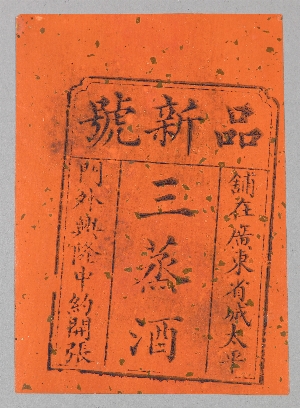 號新品
舖在廣東省城太平
三蒸酒
門外興隆中約開張